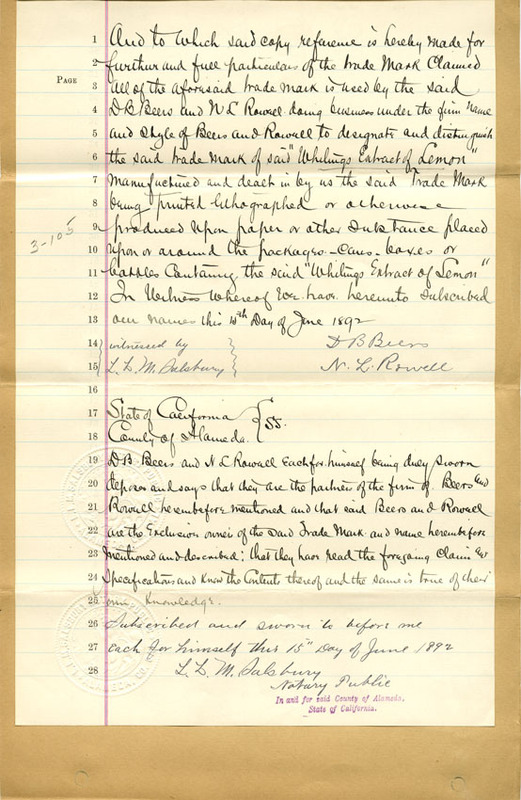 PAGE
1 And to which said copy reference is hereby made for
2 further and full particulars of the trade Mark Claimed
3 All of the aforesaid trade mark is used by the said
4 D B Beers and N L Rowell doing business under the firm name
5 and Style of Beers and Rowell to designate and distinguish
6 the said trade mark of said "Whitings Extract of Lemon"
7 Manufactured and dealt in by us the said Trade Mark
8 being printed lithographed or otherwise
9 produced upon paper or other Substance placed
3-105
10 upon or around the packages - Cans - boxes or
11 bottles Containing the said "Whitings Extract of Lemon"
12 In Witness Whereof We have hereunto Subscribed
13 our names this Day of June 1892
14 witnessed by D B Beers
15 L. L. M. Salsbury N. L. Rowell
16
17 State of California
18 County of Alameda } SS.
19 D. B. Beers and N L Rowell Each for himself being duly sworn
20 deposes and says that they are the partner of the firm of Beers and
21 Rowell hereinbefore mentioned and that said Beers and Rowell
22 are the Exclusive owner of the Said Trade Mark and name hereinbefore
23 mentioned and described; that they have read the foregoing Claim and
24 Specifications and Know the Contents thereof and the same is true of their
25 own Knowledge.
26 Subscribed and sworn to before me
27 each for himself this 15th Day of June 1892
28 L. L. M. Salsbury
Notary Public
In and for said County of Alameda,
State of California.